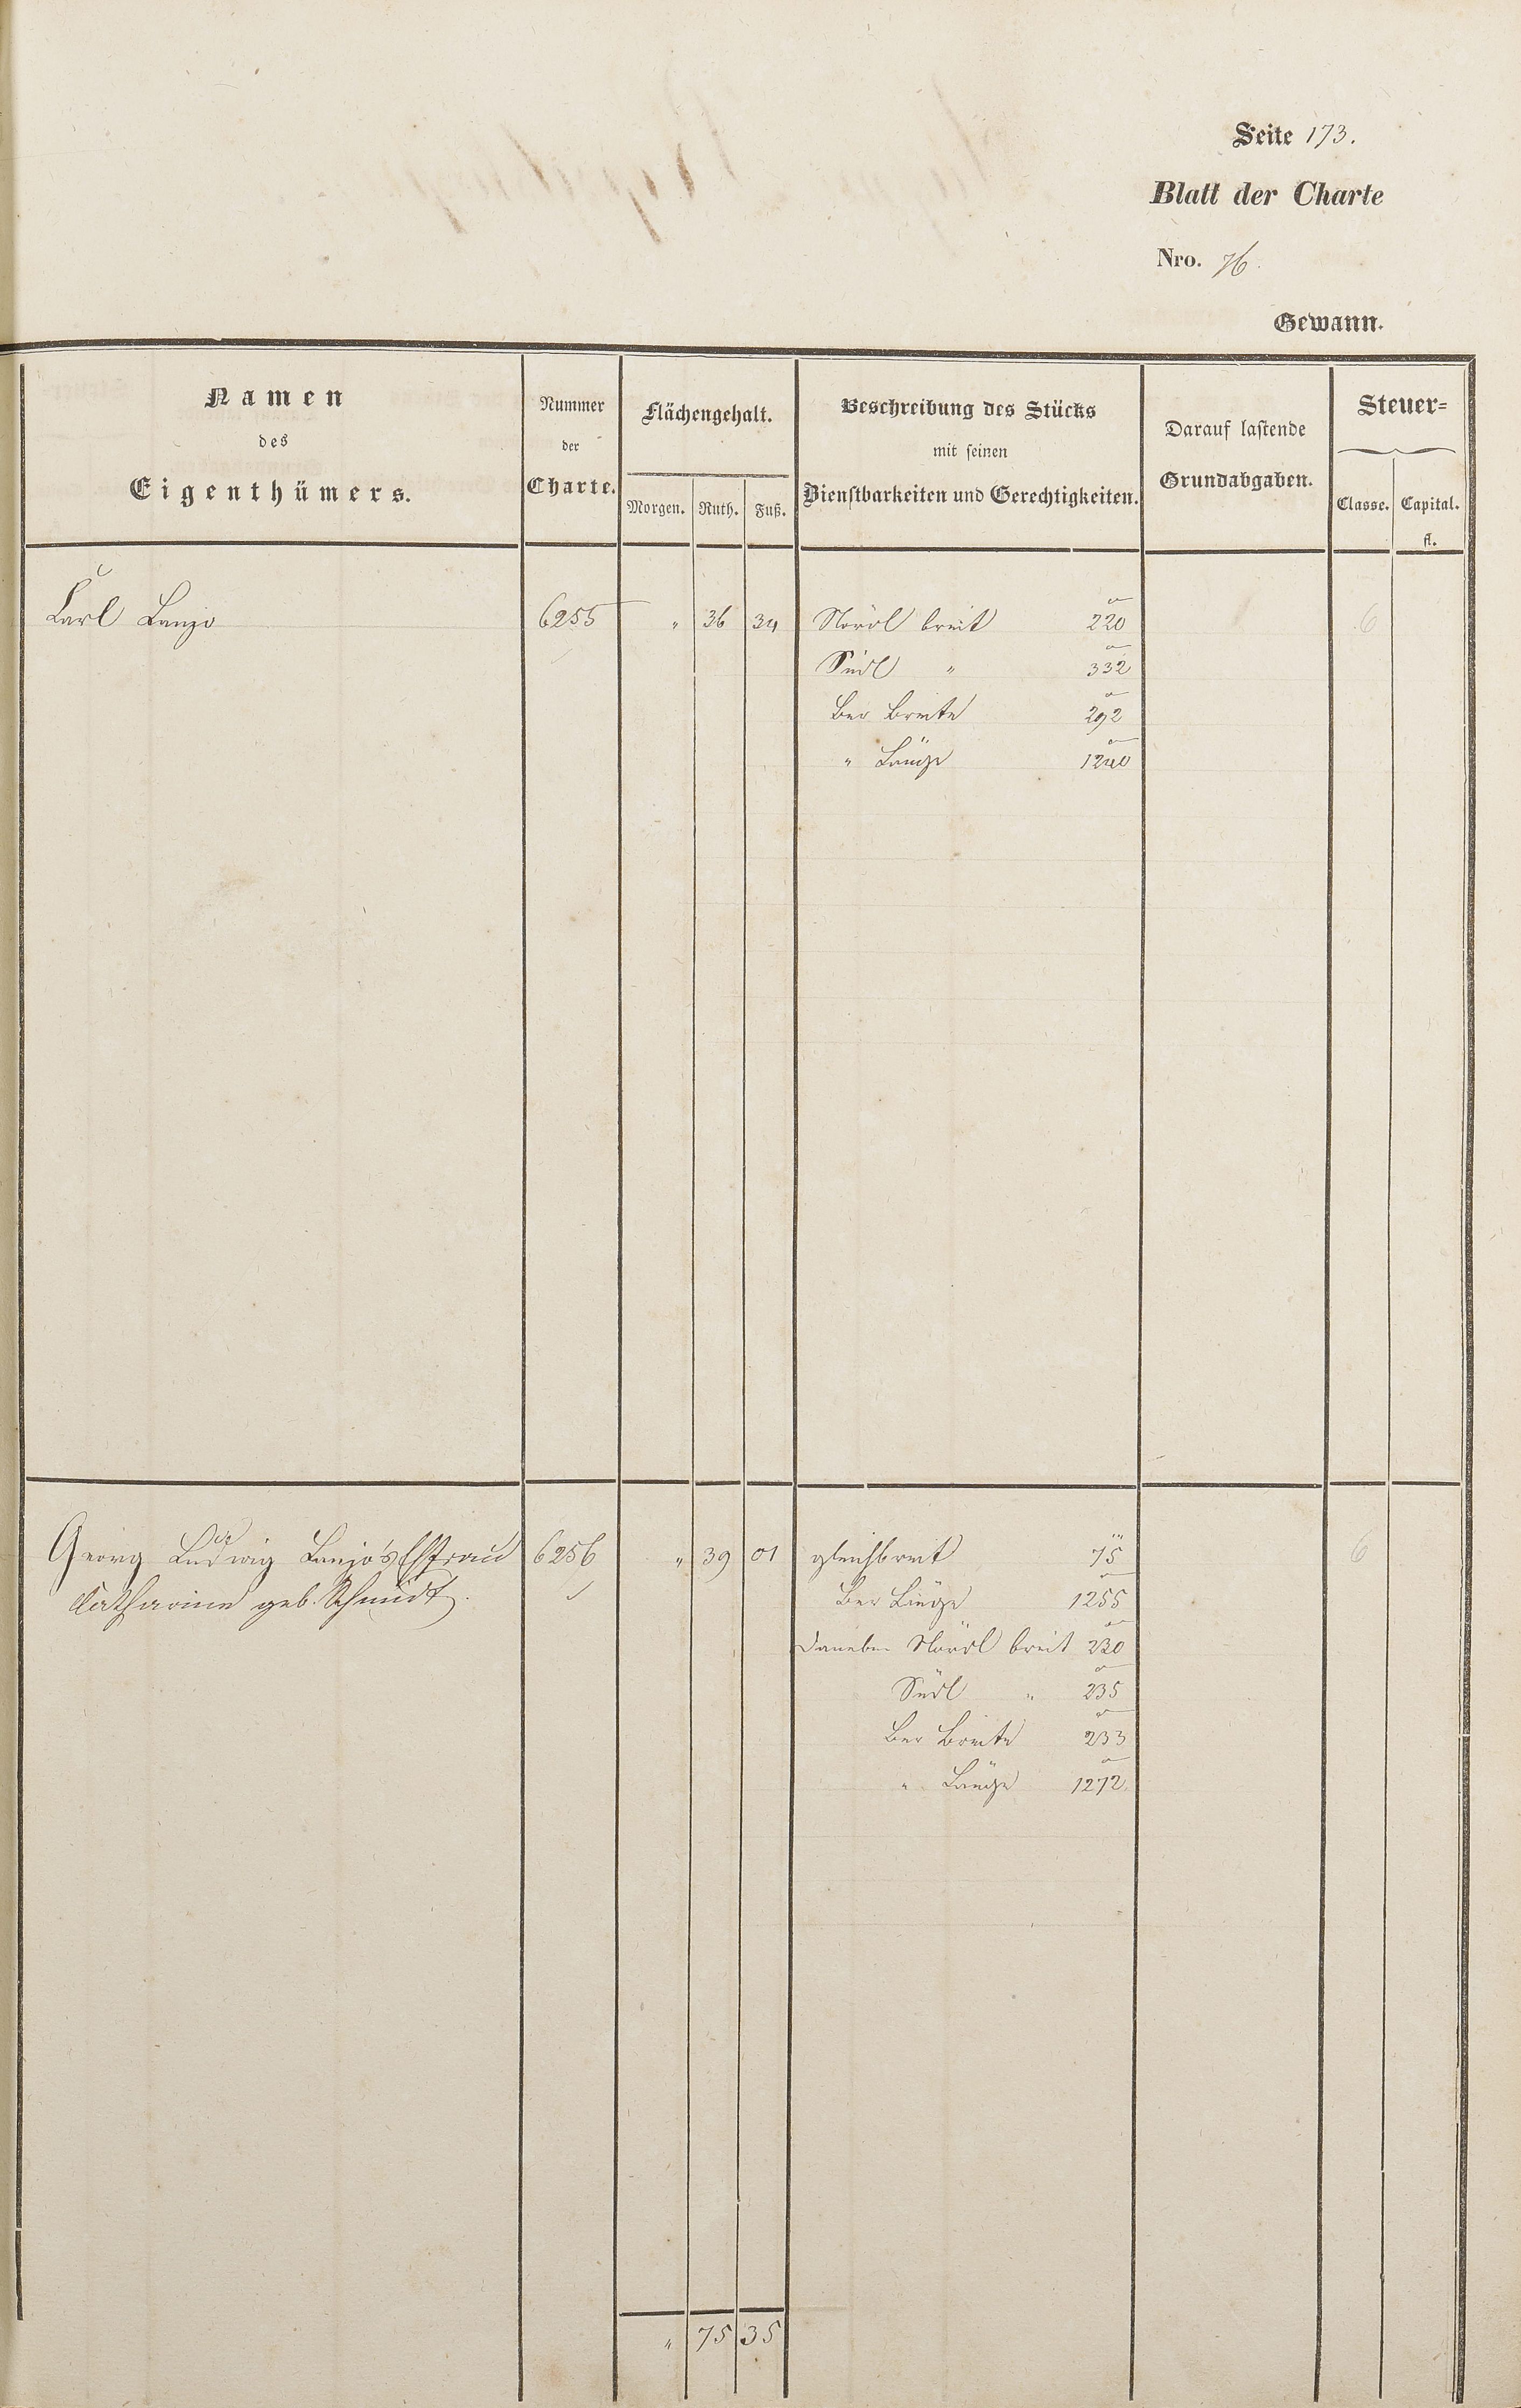 Seite 173.
Blatt der Charte
Nro. 76.
Gewann.
Namen
des
Eigenthümers.
Nummer
der
Charte.
Flächengehalt.
Morgen. Ruth. Fuß.
Beschreibung des Stücks
mit seinen
Dienstbarkeiten und Gerechtigkeiten.
Darauf lastende
Grundabgaben.
Steuer=
Classe. Capital.
fl.
Carl Lanzo 6255 " 36 34 Nördl breit 220 6
Südl " 332
Ber Breite 292
" Länge 1240
Georg Ludwig Lanzo's Ehfrau 6256 " 39 01 gleichbreit 75 6
Catharine geb. Schmidt. Ber Länge 1255
Daneben Nördl breit 230
Südl " 235
Ber Breite 233
" Länge 1272.
" 75 35